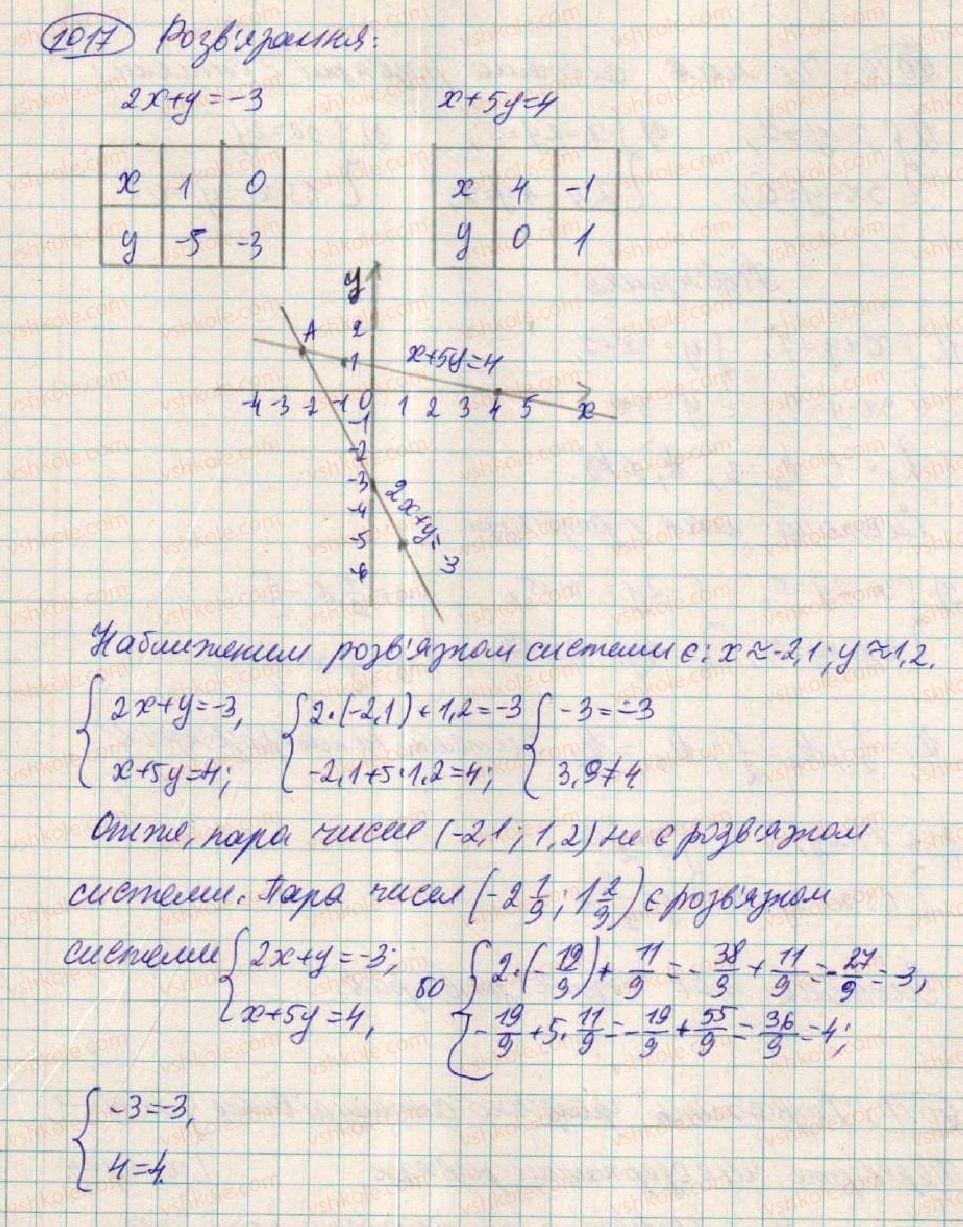 1017 Розв'язання:
2x+y=-3 x+5y=4
x 1 0
y -5 -3
x 4 -1
y 0 1
y
2
A
1
x+5y=4
-4 -3 -2 -1 0 1 2 3 4 5 x
-1
-2
-3
-4
-5
-6
2x+y=-3
Наближеним розв'язком системи є: x≈-2,1; y≈1,2.
{2x+y=-3, {2·(-2,1)+1,2=-3 {-3=-3
x+5y=4; -2,1+5·1,2=4; 3,9≠4.
Отже, пара чисел (-2,1; 1,2) не є розв'язком
системи. Пара чисел (-2 1/9; 1 2/9) є розв'язком
системи {2x+y=-3; бо {2·(-19/9)+11/9=-38/9+11/9=-27/9=-3,
x+5y=4, -19/9+5·11/9=-19/9+55/9=36/9=4;
{-3=-3,
4=4.